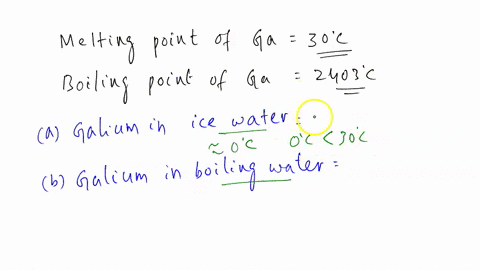 Melting point of Ga = 30°C
Boiling point of Ga = 2403°C
(a) Galium in ice water =
≈ 0°C 0°C < 30°C
(b) Galium in boiling water =